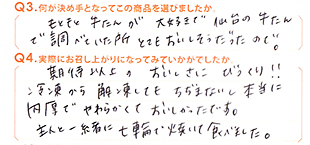 Q3.何が決め手となってこの商品を選びましたか
もともと牛たんが大好きで仙台の牛たん
で調べていた所とてもおいしそうだったので。
Q4.実際にお召し上がりになってみていかがでしたか
期待以上のおいしさにびっくり!!
冷凍から解凍してもちぢまないし本当に
肉厚でやわらかくておいしかったです。
主人と一緒に七輪で焼いて食べました。